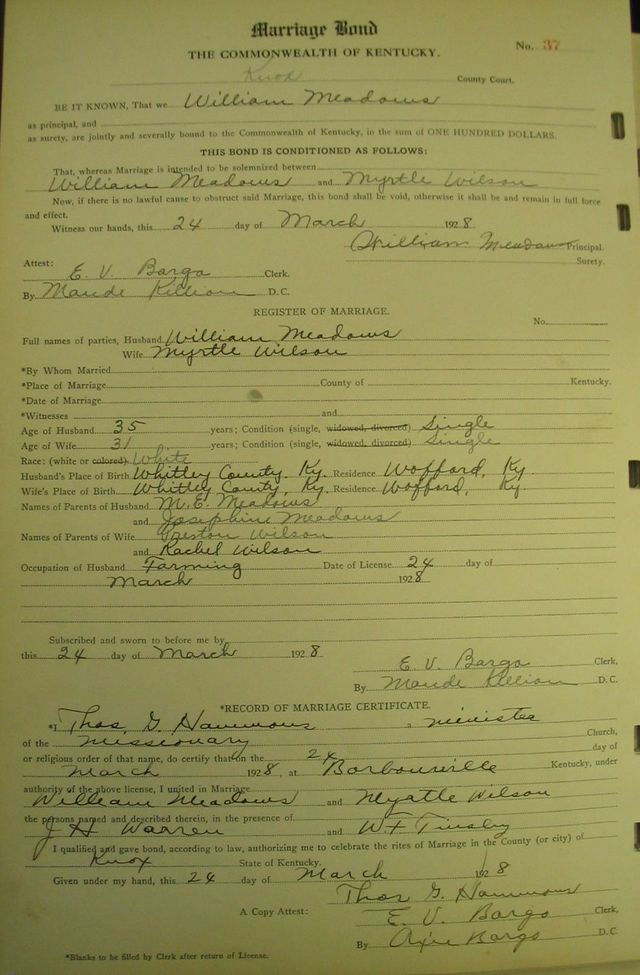 Marriage Bond
THE COMMONWEALTH OF KENTUCKY.
No. 37
Knox County Court.
BE IT KNOWN, That we William Meadows
as principal, and
as surety, are jointly and severally bound to the Commonwealth of Kentucky, in the sum of ONE HUNDRED DOLLARS.
THIS BOND IS CONDITIONED AS FOLLOWS:
That, whereas Marriage is intended to be solemnized between
William Meadows and Myrtle Wilson
Now, if there is no lawful cause to obstruct said Marriage, this bond shall be void, otherwise it shall be and remain in full force
and effect.
Witness our hands, this 24 day of March 1928
William Meadows Principal.
Surety.
Attest:
E. V. Bargo Clerk.
By Maude Killion D. C.
REGISTER OF MARRIAGE.
No.
Full names of parties, Husband William Meadows
Wife Myrtle Wilson
*By Whom Married
*Place of Marriage County of Kentucky.
*Date of Marriage
*Witnesses and
Age of Husband 35 years; Condition (single, widowed, divorced) Single
Age of Wife 31 years; Condition (single, widowed, divorced) Single
Race: (white or colored) White
Husband's Place of Birth Whitley County, Ky. Residence Wofford, Ky.
Wife's Place of Birth Whitley County, Ky. Residence Wofford, Ky.
Names of Parents of Husband M. E. Meadows
and Josephine Meadows
Names of Parents of Wife Wilson
and Rachel Wilson
Occupation of Husband Farming Date of License 24 day of
March 1928
Subscribed and sworn to before me by
this 24 day of March 1928
E. V. Bargo Clerk,
By Maude Killion D. C.
*RECORD OF MARRIAGE CERTIFICATE.
*I Thos. G. Hammons a minister
of the Missionary Church,
or religious order of that name, do certify that on the 24 day of
March 1928, at Barbourville Kentucky, under
authority of the above license, I united in Marriage
William Meadows and Myrtle Wilson
the persons named and described therein, in the presence of
J H Warren and W F Tinsley
I qualified and gave bond, according to law, authorizing me to celebrate the rites of Marriage in the County (or city) of
Knox State of Kentucky.
Given under my hand, this 24 day of March 1928
Thos G. Hammons
A Copy Attest: E. V. Bargo Clerk,
By Bargo D. C.
*Blanks to be filled by Clerk after return of License.